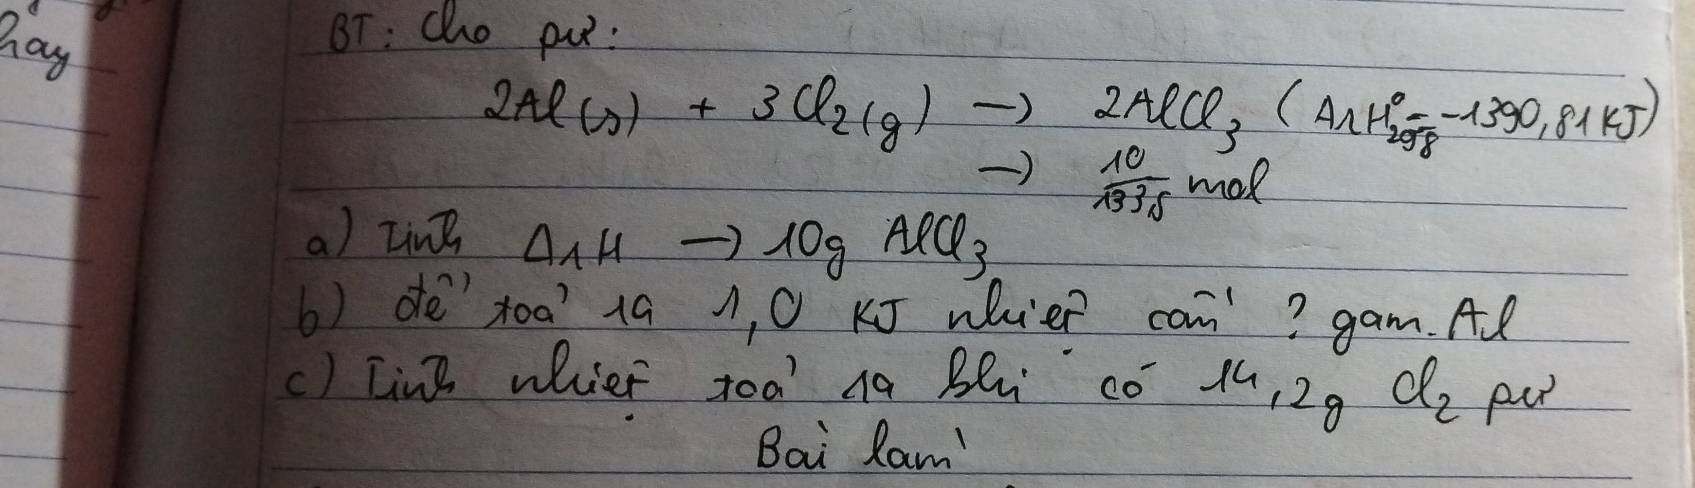 hay
BT: Cho pư:
2Al(s) + 3Cl₂(g) → 2AlCl₃ (ΔrH°₂₉₈ = -1390,81 KJ)
→ 10/133,5 mol
a) Tính ΔrH → 10g AlCl₃
b) để toả ra 1,0 KJ nhiệt cần ? gam. Al
c) Tính nhiệt toả ra khi có 14,2g Cl₂ pư
Bài làm